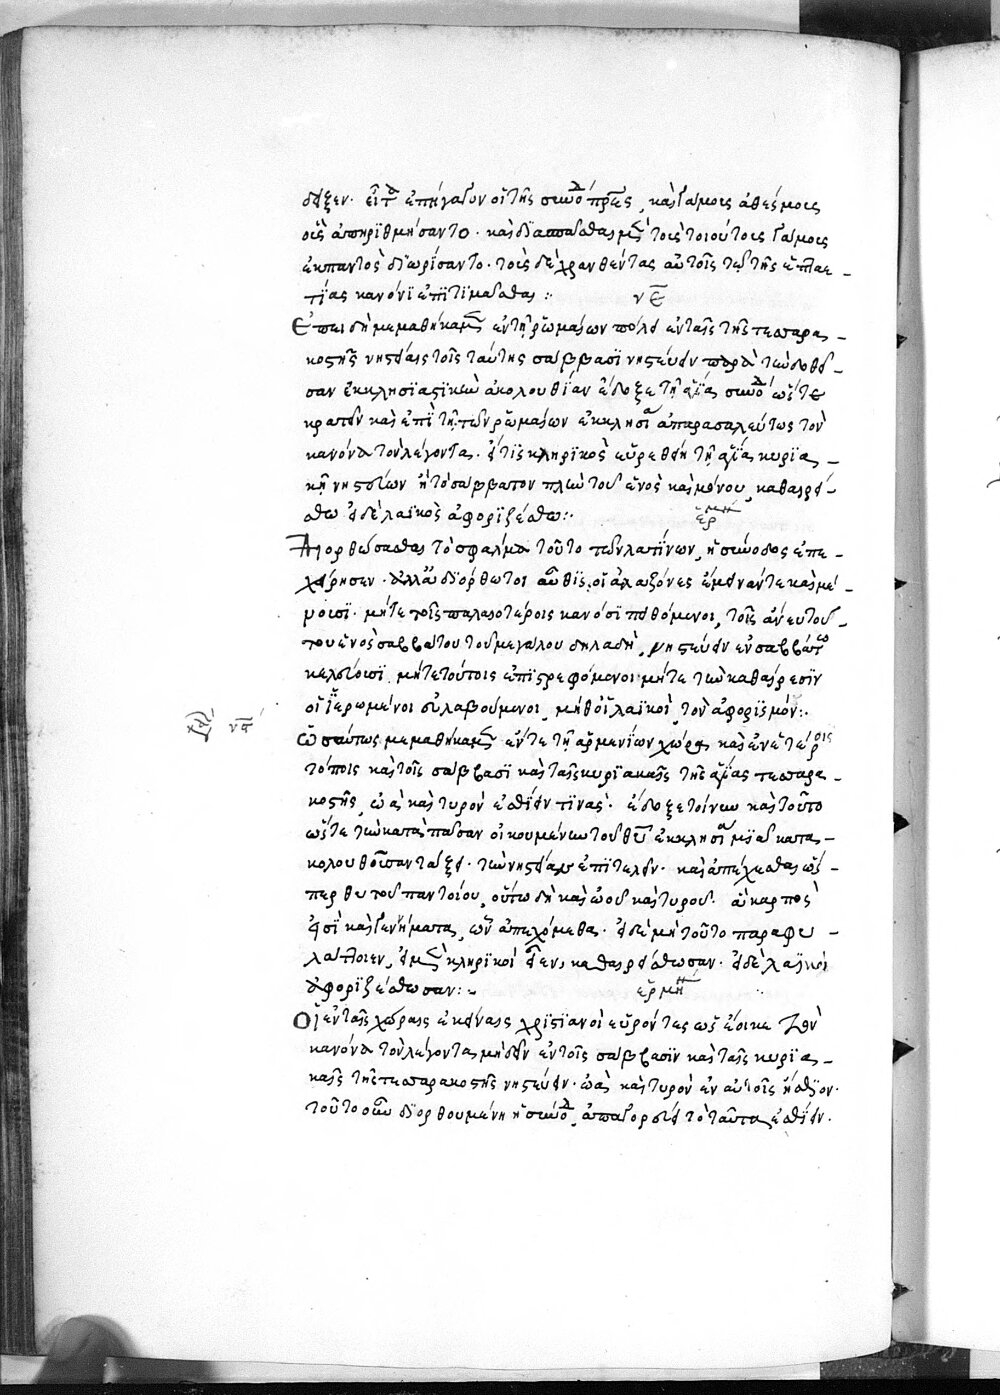 δειξεν. εἶτα ἐπήγαγον οἱ τῆς συνόδου πρες, καὶ γάμοις ἀθέσμοις
οἷς ἀπηριθμήσαντο. καὶ διασπᾶσθαι μὲν τοῖς τοιούτοις γάμοις
ἐκπαντὸς διωρίσαντο. τοὺς δὲ χρανθέντας αὐτοῖς τῷ τῆς ἑπταε-
τίας κανόνι ἐπιτιμᾶσθαι:
νε
Ἐπειδὴ μεμαθήκαμεν ἐν τῇ ῥωμαίων πόλει ἐν ταῖς τῆς τεσσαρα-
κοστῆς νηστείαις τοῖς ταύτης σάββασι νηστεύειν παρὰ τὴν δοθεῖ-
σαν ἐκκλησιαστικὴν ἀκολουθίαν ἔδοξε τῇ ἁγίᾳ συνόδῳ ὥστε
κρατεῖν καὶ ἐπὶ τῇ τῶν ῥωμαίων ἐκκλησίᾳ ἀπαρασαλεύτως τὸν
κανόνα τὸν λέγοντα. εἴ τις κληρικὸς εὑρεθείη τῇ ἁγίᾳ κυρια-
κῇ νηστεύων ἢ τὸ σάββατον πλὴν τοῦ ἑνὸς καὶ μόνου, καθαιρεί-
σθω εἰ δὲ λαϊκὸς ἀφοριζέσθω:
ἑρμη
Διορθώσασθαι τὸ σφάλμα τοῦτο τῶν λατίνων, ἡ σύνοδος ἐπε-
χείρησεν. ἀλλ' ἀδιόρθωτοι αὖθις, οἱ ἀλαζόνες ἔμειναν τε καὶ μέ-
νουσι. μήτε τοῖς παλαιοτέροις κανόσι πειθόμενοι, τοῖς ἄνευ τού-
του ἑνὸς σαββάτου τοῦ μεγάλου δηλαδὴ, νηστεύειν ἐν σαββάτῳ
κωλύουσι, μήτε τούτοις ἐπιστρεφόμενοι. μήτε τὴν καθαίρεσιν
οἱ ἱερωμένοι εὐλαβούμενοι, μηθ' οἱ λαϊκοὶ, τὸν ἀφορισμόν:
νϛ
Ὡσαύτως μεμαθήκαμεν ἔν τε τῇ ἀρμενίων χώρᾳ καὶ ἐν ἑτέροις
τόποις καὶ τοῖς σάββασι καὶ ταῖς κυριακαῖς τῆς ἁγίας τεσσαρα-
κοστῆς, ὠὰ καὶ τυρὸν ἐσθίειν τινάς. ἔδοξε τοίνυν καὶ τοῦτο
ὥστε τὴν κατὰ πᾶσαν οἰκουμένην τοῦ θυ ἐκκλησίαν μιᾷ κατα-
κολουθοῦσαν τάξει. τὴν νηστείαν ἐπιτελεῖν. καὶ ἀπέχεσθαι ὥσ-
περ θυτοῦ παντοίου, οὕτω δὴ καὶ ὠοῦ καὶ τυροῦ. ἃ καρπὸς
εἰσὶ καὶ γεννήματα, ὧν ἀπεχόμεθα. εἰ δὲ μὴ τοῦτο παραφυ-
λάττοιεν, εἰ μὲν κληρικοὶ εἶεν, καθαιρείσθωσαν. εἰ δὲ λαϊκοὶ
ἀφοριζέσθωσαν:
ἑρμη
Οἱ ἐν ταῖς χώραις ἐκείναις χριστιανοὶ εὑρόντες ὡς ἔοικε τὸν
κανόνα τὸν λέγοντα μὴ δεῖν ἐν τοῖς σάββασιν καὶ ταῖς κυρια-
καῖς τῆς τεσσαρακοστῆς νηστεύειν. ὠὰ καὶ τυρὸν ἐν αὐτοῖς ἤσθιον.
τοῦτο οὖν διορθουμένη ἡ σύνοδος, ἀπαγορεύει τὸ ταῦτα ἐσθίειν.